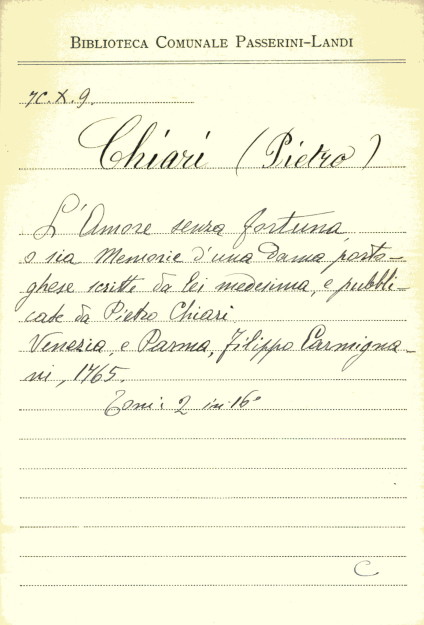 BIBLIOTECA COMUNALE PASSERINI-LANDI
7C.X.9.
Chiari (Pietro)
L'Amore senza fortuna,
o sia Memorie d'una dama porto-
ghese scritte da lei medesima, e pubbli-
cate da Pietro Chiari.
Venezia, e Parma, Filippo Carmigna-
ni, 1765.
Tomi 2 in 16°
C